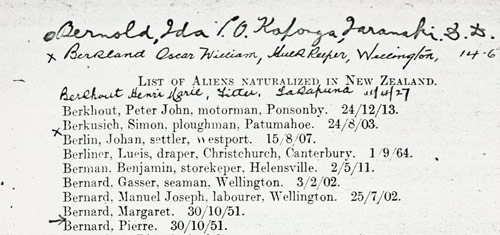 Bernold, Ida P.O. Kaponga Taranaki
x Berkland Oscar William, Hutt Keeper, Wellington, 14-6
LIST OF ALIENS NATURALIZED IN NEW ZEALAND.
Berkhout Henri Marie, Takapuna 11/4/27
Berkhout, Peter John, motorman, Ponsonby. 24/12/13.
x Berkusich, Simon, ploughman, Patumahoe. 24/8/03.
Berlin, Johan, settler, Westport. 15/8/07.
Berliner, Lueis, draper, Christchurch, Canterbury. 1/9/64.
Berman. Benjamin, storekeper, Helensville. 2/5/11.
Bernard, Gasser, seaman, Wellington. 3/2/02.
Bernard, Manuel Joseph, labourer, Wellington. 25/7/02.
Bernard, Margaret. 30/10/51.
Bernard, Pierre. 30/10/51.